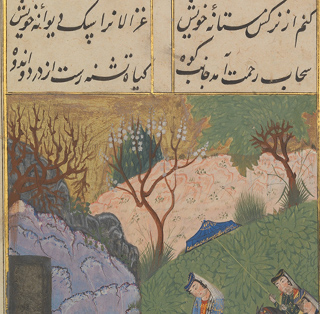 کنم از نرگس مستانه خویش
غزالانرا سگ دیوانه خویش
سحاب رحمت آمد جانب کوه
گیاه تشنه رست از درد و اندوه